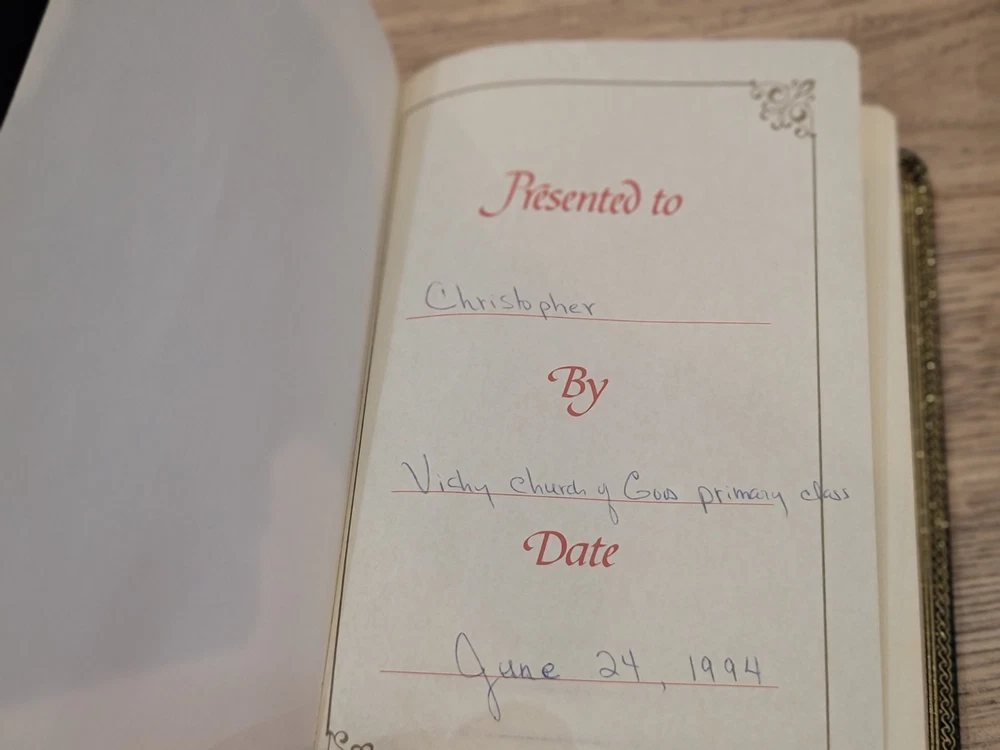 Presented to
Christopher
By
Vichy church of God primary class
Date
June 24, 1994